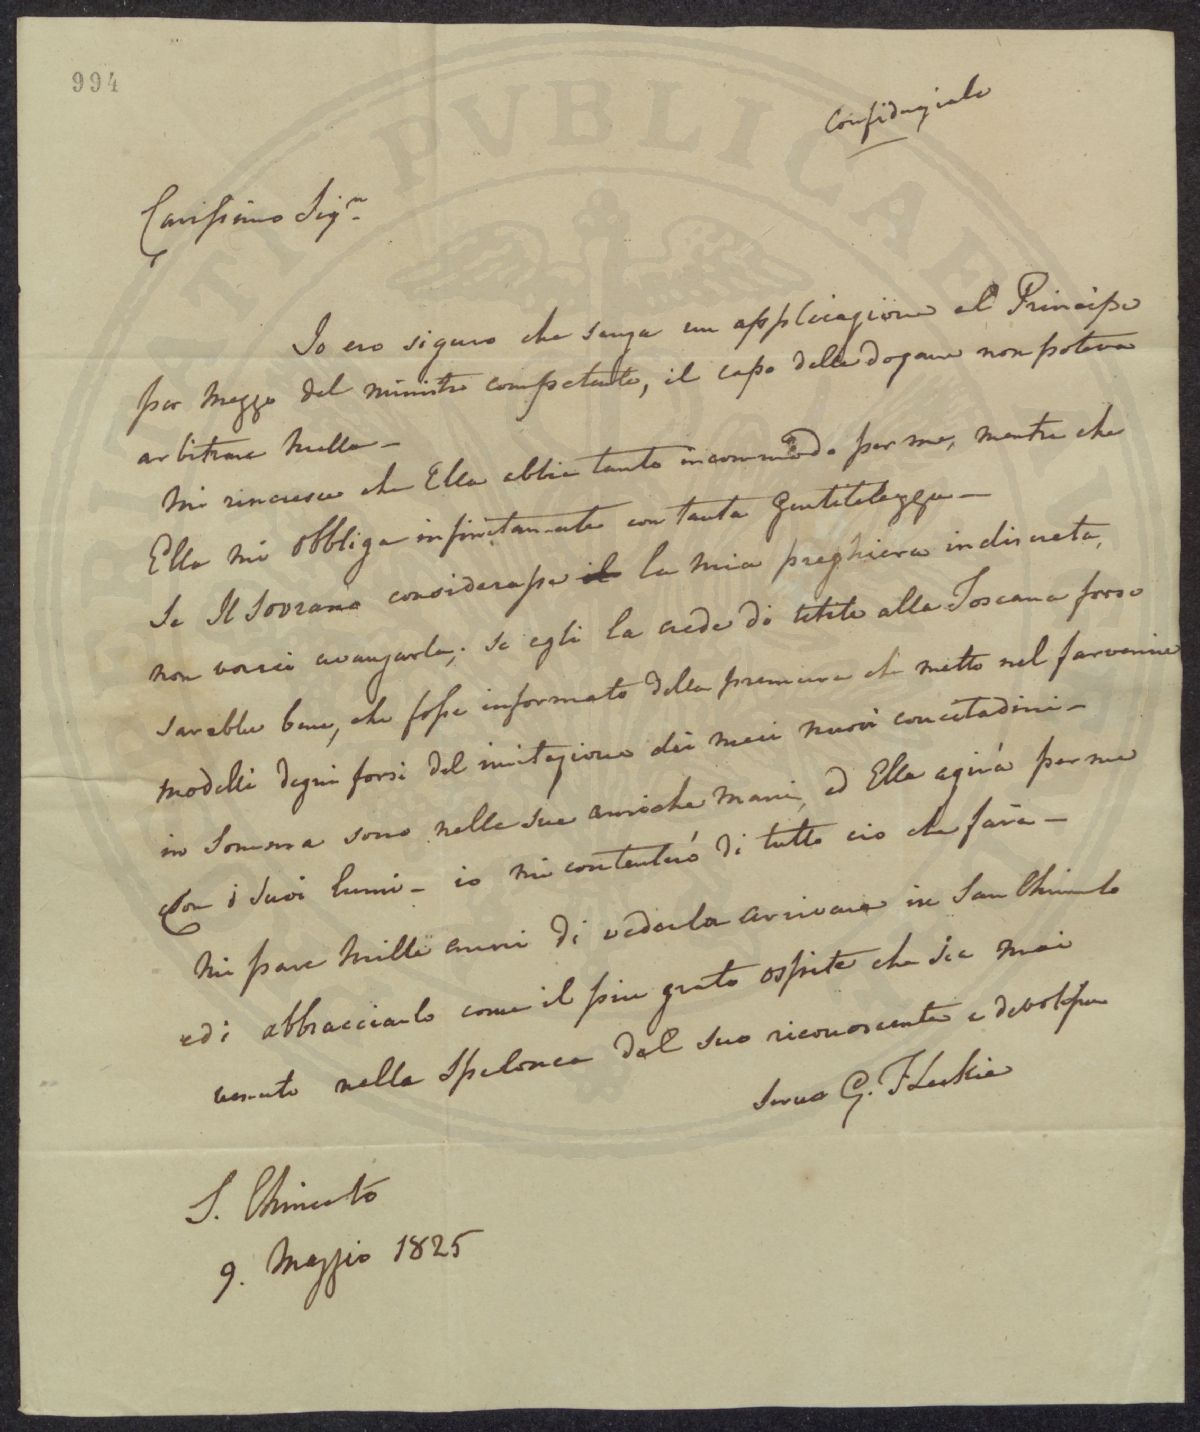 994
Confidenziale
Carissimo Sigre
Io ero siguro che senza un applicazione al Principe
per mezzo del ministro competente, il capo delle dogane non poteva
arbitrare nulla —
Mi rincresce che Ella abbia tanto incommodo per me, mentre che
Ella mi obbliga infinitamente con tanta gentilelezza —
Se Il Sovrano considerasse il la mia preghiera indiscreta,
non vorrei avanzarla; se egli la crede di utile alla Toscana forse
sarebbe bene, che fosse informato della premura che metto nel farvenire
modelli degni forsi del imitazione dei miei nuovi concitadini —
in somma sono nelle sue amiche mani, ed Ella agirà per me
Con i suoi lumi — io mi contenterò di tutto cio che farà —
Mi pare mille anni di vederla arrivare in San Chimento
edi abbracciarlo come il piu grato ospite che sia mai
venuto nella Spelonca del suo riconoscente e devotssmo
Servo G. F Leckie
S. Chimento
9. Maggio 1825
PVBLICAE